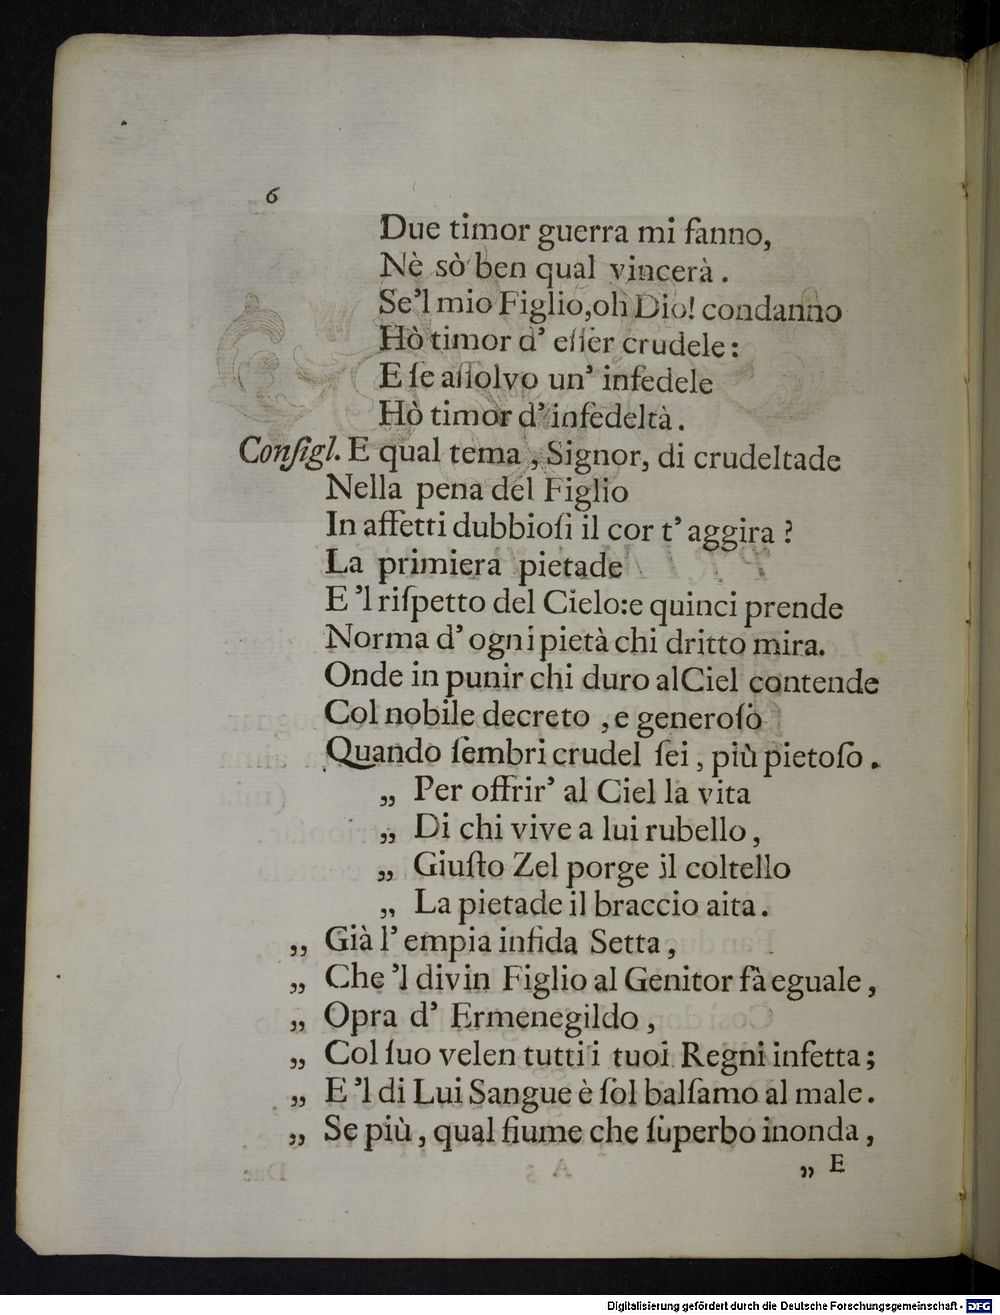 6
Due timor guerra mi fanno,
Nè sò ben qual vincerà.
Se'l mio Figlio, oh Dio! condanno
Hò timor d' eſſer crudele:
E ſe aſſolvo un' infedele
Hò timor d' infedeltà.
Conſigl. E qual tema, Signor, di crudeltade
Nella pena del Figlio
In affetti dubbioſi il cor t' aggira?
La primiera pietade
E 'l riſpetto del Cielo: e quinci prende
Norma d' ogni pietà chi dritto mira.
Onde in punir chi duro al Ciel contende
Col nobile decreto, e generoſo
Quando ſembri crudel ſei, più pietoſo.
„ Per offrir' al Ciel la vita
„ Di chi vive a lui rubello,
„ Giuſto Zel porge il coltello
„ La pietade il braccio aita.
„ Già l' empia infida Setta,
„ Che 'l divin Figlio al Genitor fà eguale,
„ Opra d' Ermenegildo,
„ Col ſuo velen tutti i tuoi Regni infetta;
„ E 'l di Lui Sangue è ſol balſamo al male.
„ Se più, qual fiume che ſuperbo inonda,
„ E
Digitalisierung gefördert durch die Deutsche Forschungsgemeinschaft - DFG